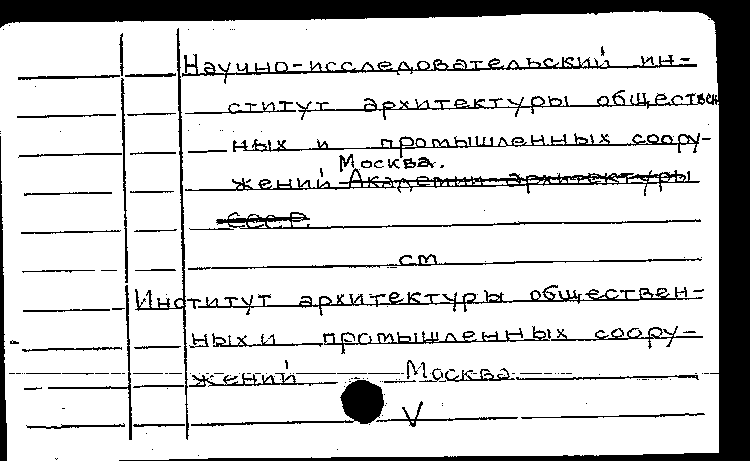 Научно-исследовательский ин-
ститут архитектуры обществен
ных и промышленных соору-
Москва.
жений Академии архитектуры
СССР.
см
Институт архитектуры обществен-
ных и промышленных соору-
жений. Москва.
V